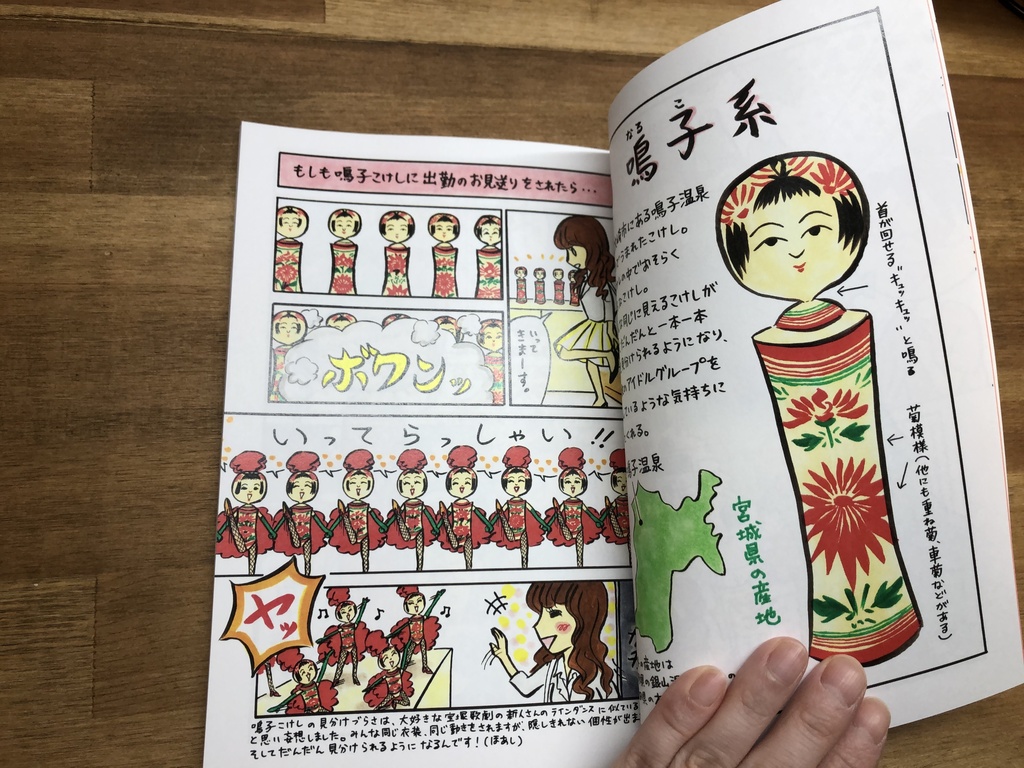 もしも鳴子こけしに出勤のお見送りをされたら…
いって
きまーす。
ボワンッ
いってらっしゃい!!
ヤッ
鳴子こけしの見分けづらさは、大好きな宝塚歌劇の新人さんのラインダンスに似ている
と思い妄想しました。みんな同じ衣装、同じ動きをされますが、隠しきれない個性が出ま
そしてだんだん見分けられるようになるんです!(ほあし)
なる こ
鳴子系
市にある鳴子温泉
うまれたこけし。
の中でおそらく
こけし。
同じに見えるこけしが
だんだんと一本一本
見分けられるようになり、
アイドルグループを
いるような気持ちに
くれる。
子温泉
宮城県の産地
産地は
の銀山
首が回せる"キュッキュッ"と鳴る
菊模様(他にも重ね菊、車菊などがある)